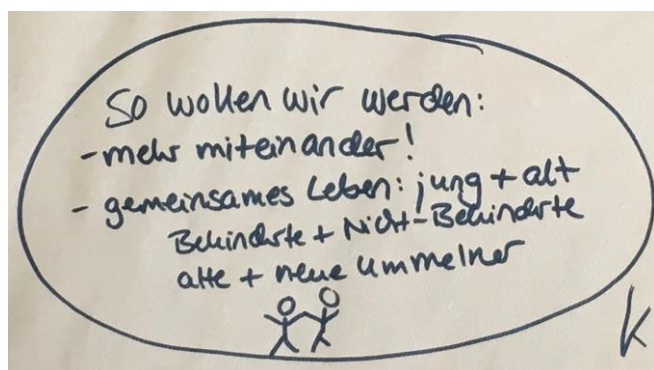 So wollen wir werden:
- mehr miteinander!
- gemeinsames Leben: jung + alt
Behinderte + Nicht-Behinderte
alte + neue Ummelner
K